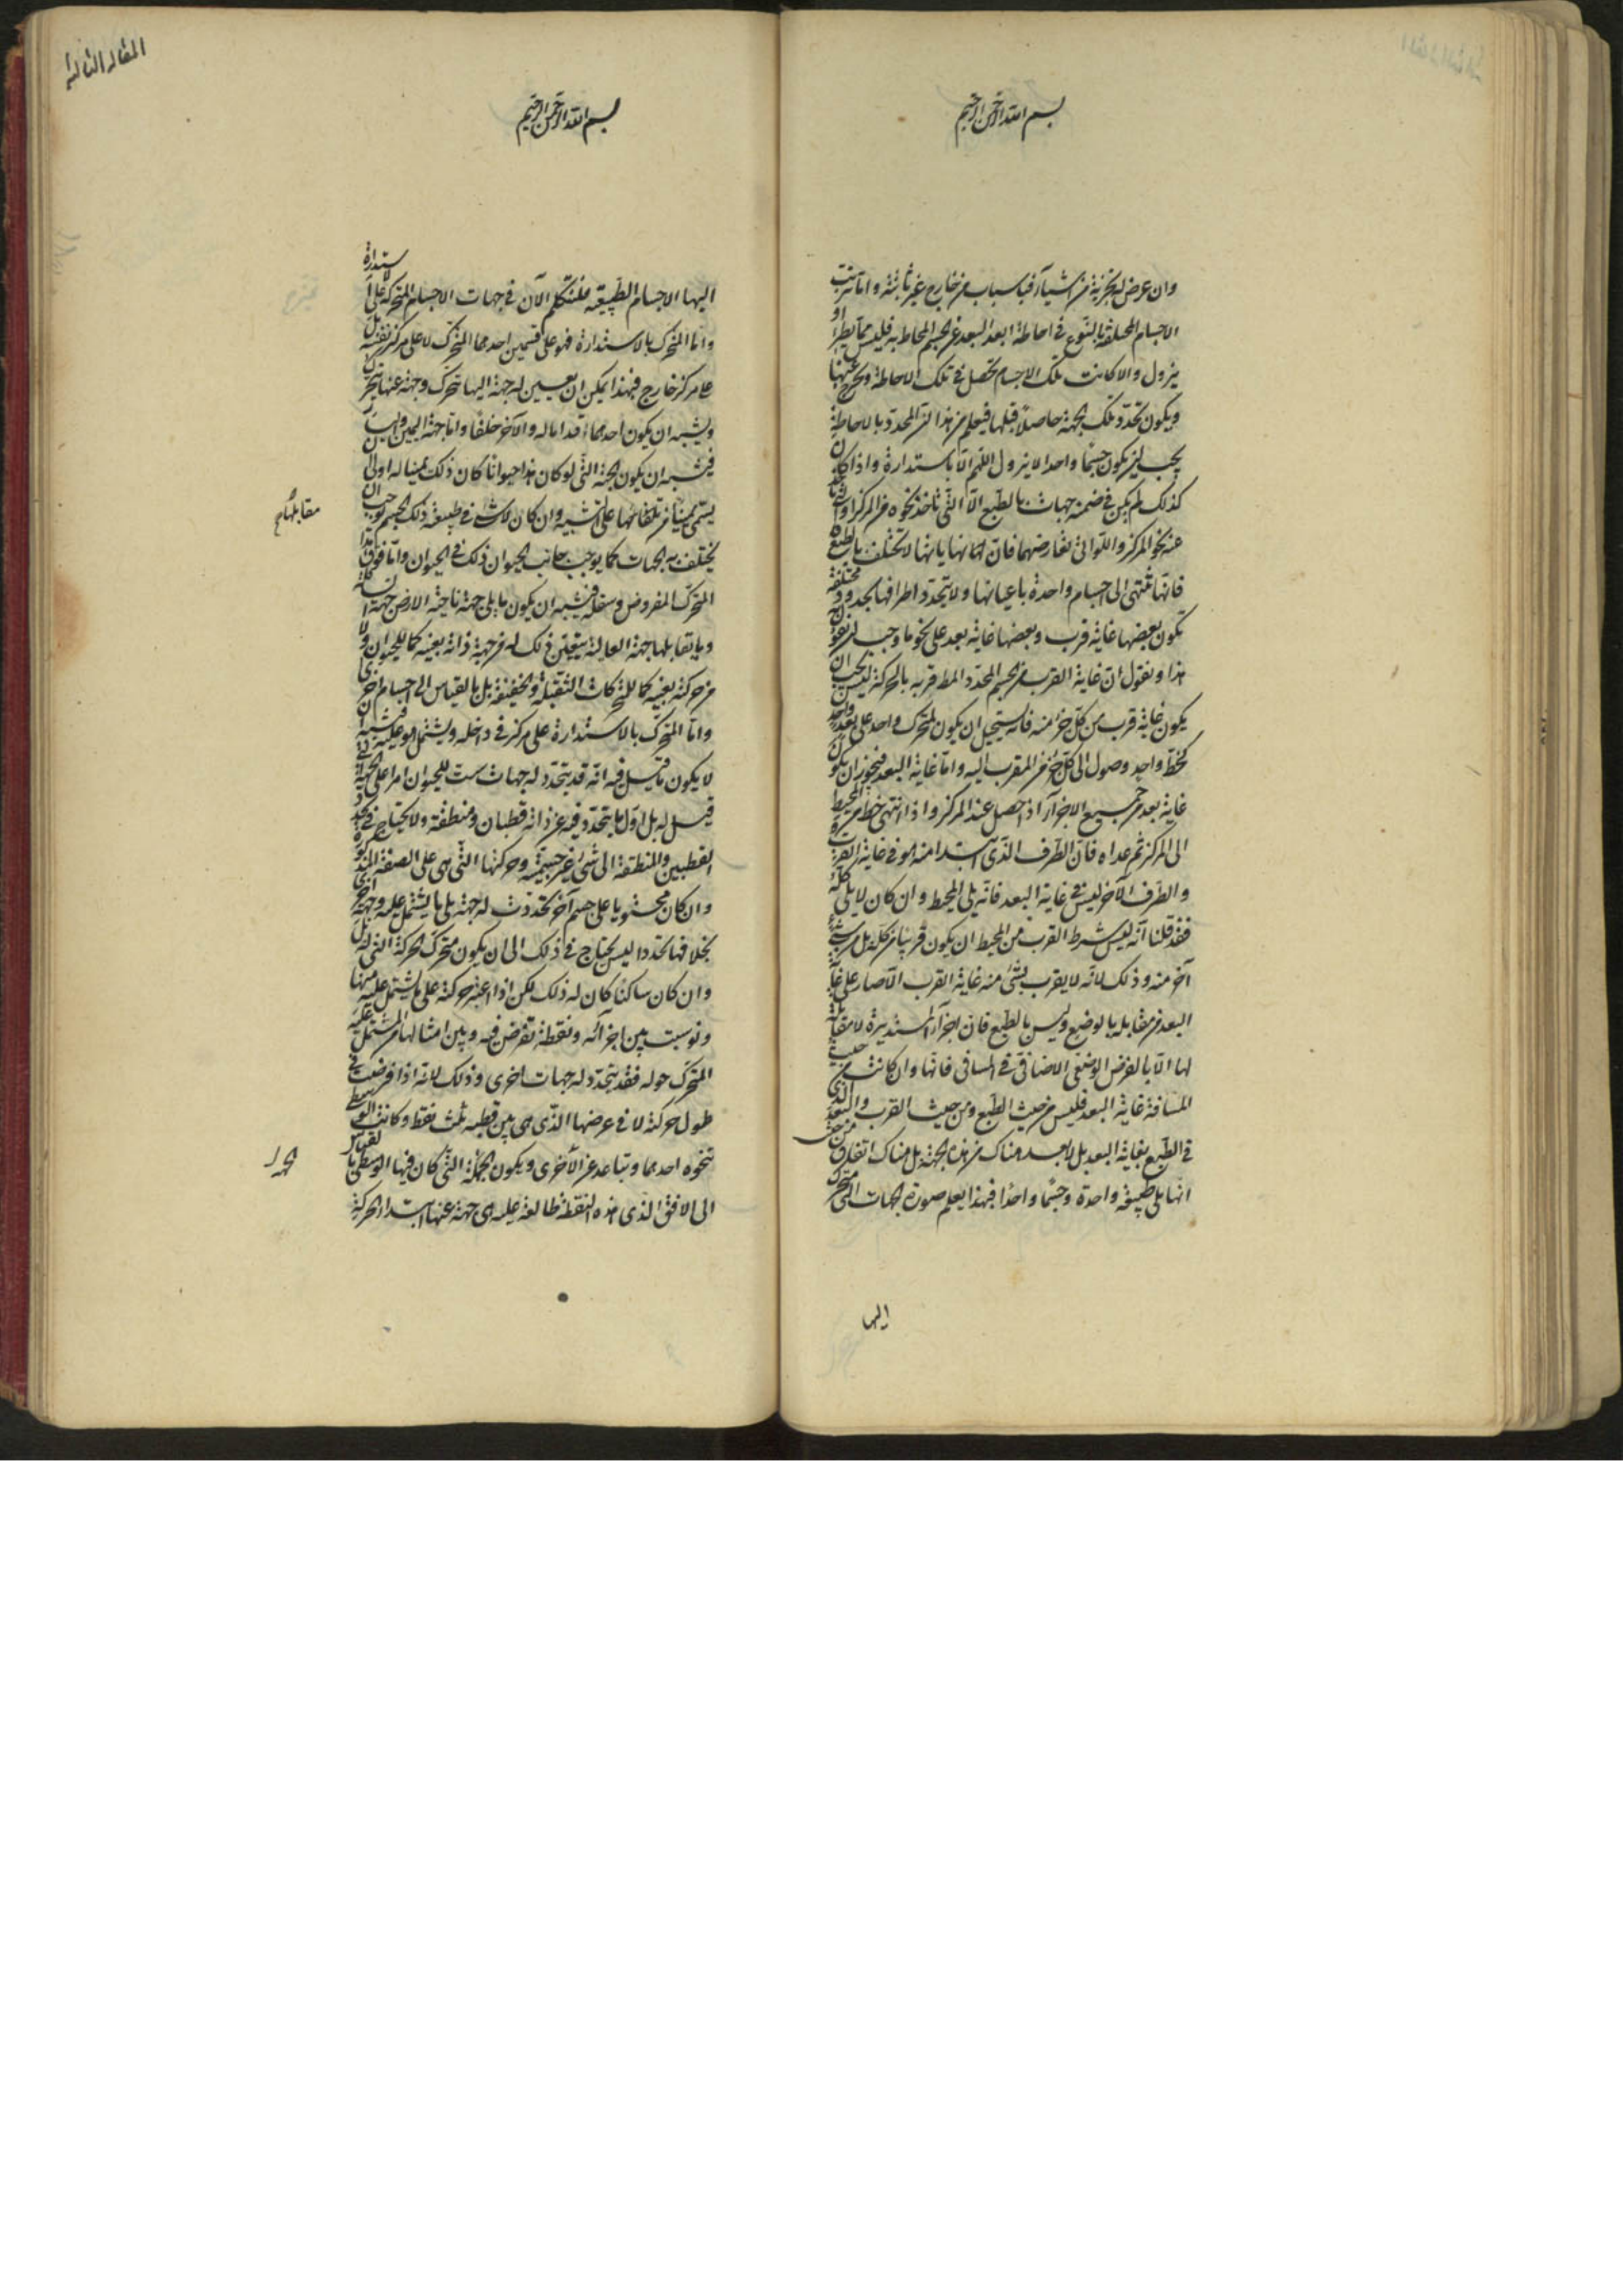 بسم الله الرحمن الرحيم
وان عرض له تجزية من اشياء فباسباب من خارج غير ثابتة واما ترتب
الاجسام المختلفة بالنوع في احاطة ابعد البعد عن الجسم المحاط به فليس مما يطرا او
يزول والا كانت تلك الاجسام تحصل في تلك الاحاطة وتخرج عنها
ويكون تحدد تلك الجهة حاصلا قبلها فيعلم من هذا ان المحدد بالاحاطة
يجب ان يكون جسما واحدا لا يزول اللهم الا باستدارة واذا كان
كذلك لم يكن في ضمنه جهات بالطبع الا التي تاخذ نحوه من المركز او تاخذ
عنه نحو المركز واللواتي تعارضهما فان نهاياتها لا تختلف بالطبع
فانها تنتهي الى اجسام واحدة باعيانها ولا يتحدد اطرافها بحدود مختلفة
يكون بعضها غاية قرب وبعضها غاية بعد على نحو ما وجب
هذا ونقول ان غاية القرب من الجسم المحدد المط قربه بالحركة ليس يجب ان
يكون غاية قرب من كل جزء منه فانه يستحيل ان يكون لمتحرك واحد على بعد واحد
كخط واحد وصول الى كل جزء من المقرب اليه واما غاية البعد فيجوز ان يكون
غاية بعد من جميع الاجزاء اذ حصل عند المركز واذا انتهى خط من المحيط
الى المركز ثم عداه فان الطرف الذي ابتدا منه هو في غاية القرب
والطرف الآخر ليس في غاية البعد فانه يلي المحيط وان كان لا يلي كله
فقد قلنا انه ليس شرط القرب من المحيط ان يكون قريبا من كله بل من شيء
آخر منه وذلك لانه لا يقرب بشيء منه غاية القرب الا صار على غاية
البعد من مقابله بالوضع وليس بالطبع فان اجزاء المستديرة لا مقابلة
لها الا بالفرض الوضعي الاضافي في المسافي فانها وان كانت من حيث
المسافة غاية البعد فليس من حيث الطبع ومن حيث القرب والبعد الذي
في الطبع بغاية البعد بل لا بعد هناك من هذه الجهة بل هناك اتفاق من حيث
انها يلي طبيعة واحدة وجسما واحدا فبهذا يعلم صورة الجهات التي تتحرك
اليها
المقاله الثالثة
بسم الله الرحمن الرحيم
اليها الاجسام الطبيعية فلنتكلم الآن في جهات الاجسام المتحركة على الاستدارة
واما المتحرك بالاستدارة فهو على قسمين احدهما المتحرك لا على مركز نفسه بل
على مركز خارج فهذا يمكن ان يعين له جهة اليها تتحرك وجهة عنها تتحرك
ويشبه ان يكون احدهما قداما له والآخر خلفا واما جهة اليمين واليسار
فيشبه ان يكون الجهة التي لو كان هذا حيوانا كان ذلك يمينا له اولى ان
يسمى يمينا من تلقائها على التشبيه وان كان لا شيء في طبيعة ذلك الجسم يوجب ان
مقابلها
يختلف به الجهات كما يوجب جانب الحيوان ذلك في الحيوان واما فوق هذا
المتحرك المفروض وسفله فيشبه ان يكون ما يلي جهة ناحية الارض جهة السافلة
وما يقابلها جهة العالية يتعلق ذلك له من جهة ذاته بعينه كما للحيوان ولا
من حركة بعينه كما للمتحركات الثقيلة والخفيفة بل بالقياس الى اجسام اخرى
واما المتحرك بالاستدارة على مركز في داخله ويشتمل هو عليه فيشبه ان
لا يكون ما قيل فيه انه قد يتحدد له جهات ست للحيوان امرا على الجهة التي
قيل له بل اول ما يتحدد فيه عن ذاته قطبان ومنطقة ولا يحتاج في تحدد
القطبين والمنطقة الى شيء غير جسمية وحركتها التي هي على الصفة المذكورة
وان كان محتويا على جسم آخر تحددت له جهة يلي ما يشتمل عليه وجهة اخرى
بخلافها تحددا ليس يحتاج في ذلك الى ان يكون متحرك الحركة التي له بل
وان كان ساكنا كان له ذلك لكن اذا اعتبر حركته على ما يشتمل عليه منها
ونوسبت بين اجزائه ونقطة تفرض فيه وبين امثالها من المشتمل عليه
المتحرك حوله فقد يتحدد له جهات اخرى وذلك لانه اذا فرضت في
طول حركته لا في عرضها الذي هي بين قطبيه ثلث نقط وكانت الوسطى
تنحوه احدهما وتباعد عن الأخرى ويكون الجملة التي كان فيها الوسطى بالقياس
الى الافق الذي هذه النقطة طالعة عليه هي جهة عنها ابتداء الحركة